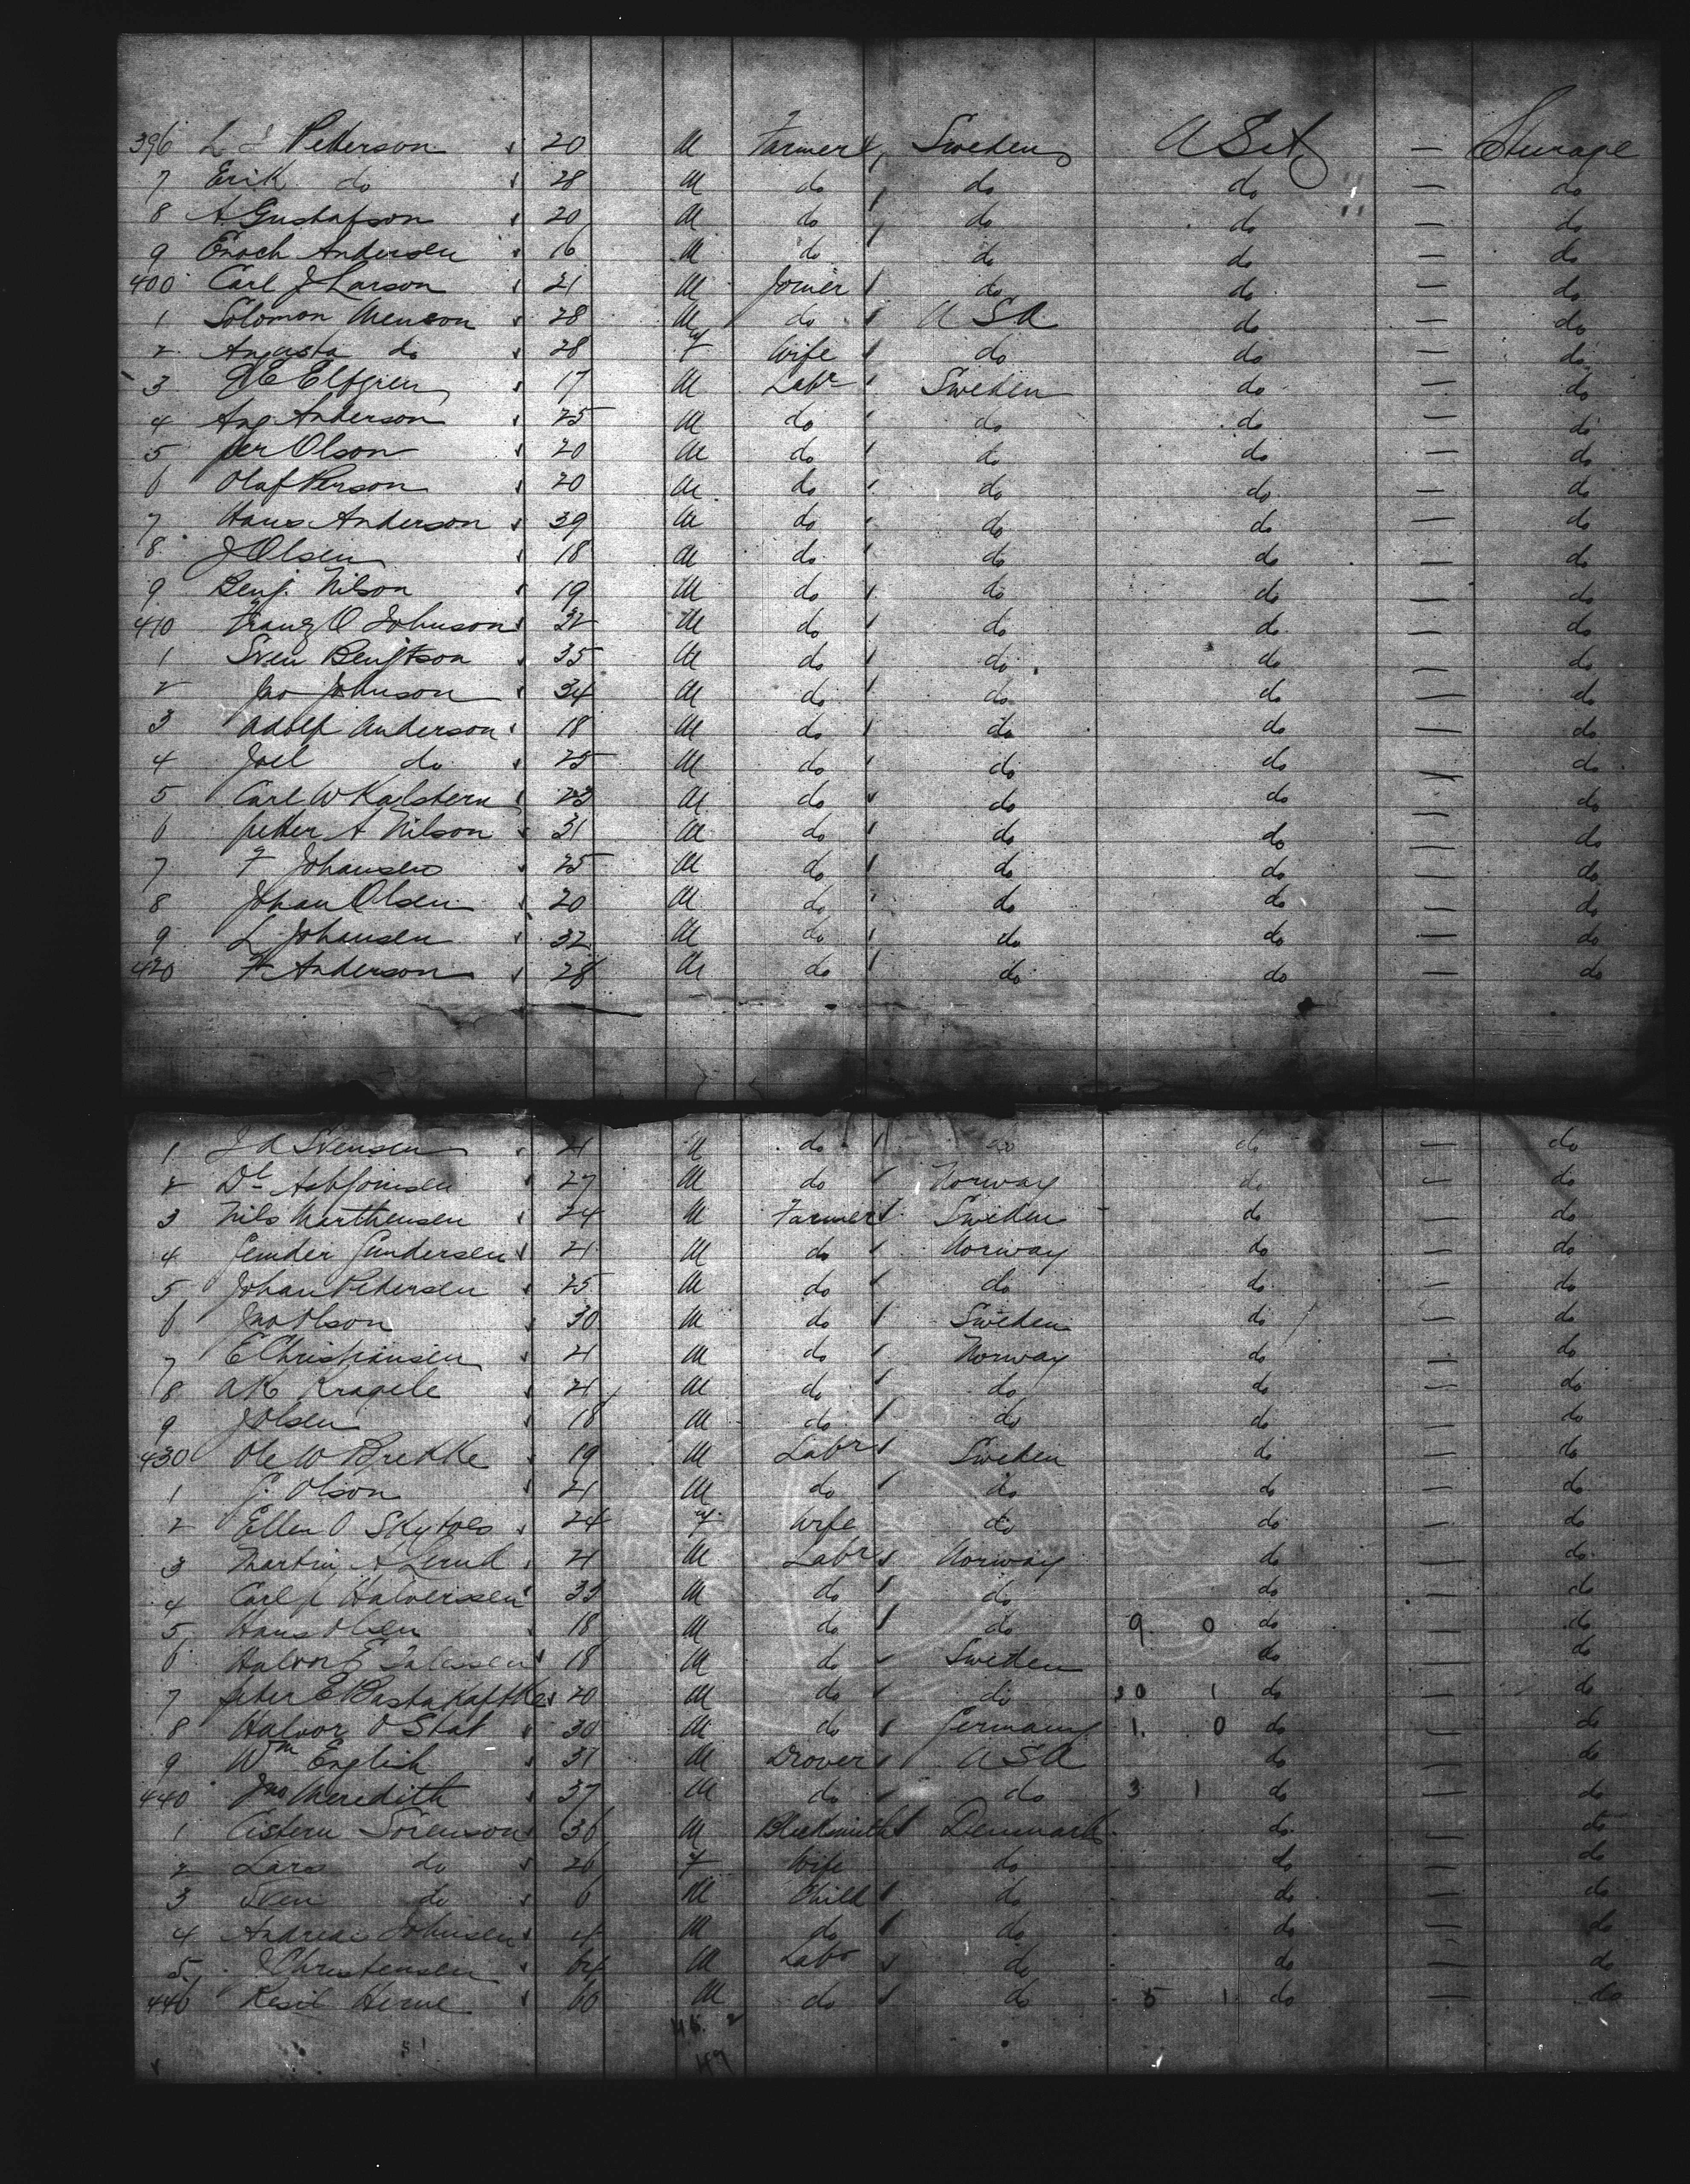 396 L J Pederson 20 M Farmer Sweden U S A — Steerage
7 Erik do 28 M do do do — do
8 A Gustafson 20 M do do do — do
9 Enoch Andersen 16 M do do do — do
400 Carl J Larson 21 M Joiner do do — do
1 Solomon Menson 28 M do U S A do — do
2 Augusta do 28 f Wife do do — do
3 Elfgren 17 M Labr Sweden do — do
4 Aug Anderson 25 M do do do — do
5 per Olson 20 M do do do — do
6 Olaf Person 20 M do do do — do
7 Hans Anderson 39 M do do do — do
8 J Olsen 18 M do do do — do
9 Benj. Nilson 19 M do do do — do
410 Franz O Johnson 32 M do do do — do
1 Sven Bengtson 35 M do do do — do
2 Jno Johnson 34 M do do do — do
3 Adolf Anderson 18 M do do do — do
4 Joel do 25 M do do do — do
5 Carl W Karlstern 23 M do do do — do
6 petter A Nilson 31 M do do do — do
7 F Johansen 25 M do do do — do
8 Johan Olsen 20 M do do do — do
9 L Johansen 32 M do do do — do
420 F Anderson 28 M do do do — do
1 J A Svensen 21 M do do do — do
2 Asbjornsen 27 M do Norway do — do
3 Nils Marthensen 24 M Farmer Sweden do — do
4 Gunder Gundersen 21 M do Norway do — do
5 Johan Petersen 25 M do do do — do
6 Jno Olson 30 M do Sweden do — do
7 E Christiansen 21 M do Norway do — do
8 A K Kragele 21 M do do do — do
9 J Olsen 18 M do do do — do
430 Ole W Brekke 19 M Labr Sweden do — do
1 G. Olson 21 M do do do — do
2 Ellen O 24 f Wife do do — do
3 Martin A Lerud 21 M Labr Norway do — do
4 Carl J Halversen 33 M do do do — do
5 Hans Olsen 18 M do do 9 0 do — do
6 Halvor E 18 M do Sweden do — do
7 peter E 20 M do do 30 1 do — do
8 Halvor O Stat 30 M do Germany 1 0 do — do
9 Wm English 31 M Drover U S A do — do
440 Jno Meredith 37 M do do 3 1 do — do
1 Sorenson 36 M Blcksmith Denmark do — do
2 Lars do 26 f Wife do do — do
3 Sven do 6 M Child do do — do
4 Andreas Johnsen 4 M do do do — do
5 J Christensen 64 M Labr do do — do
446 Herne 60 M do do 5 1 do — do
49